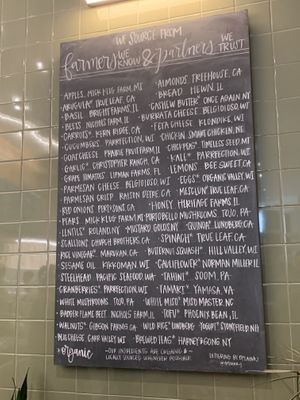 WE SOURCE FROM
farmers WE KNOW & partners WE TRUST
• APPLES, MICK KLUG FARM, MI • ALMONDS, TREEHOUSE, CA
• ARUGULA* TRUE LEAF, CA • BREAD HEWN, IL
• BASIL BRIGHT FARMS, IL • CASHEW BUTTER* ONCE AGAIN, NY
• BEETS NICHOLS FARM, IL • BURRATA CHEESE BELGIOIOSO, WI
• CARROTS* KERN RIDGE, CA • FETA CHEESE KLONDIKE, WI
• CUCUMBERS PARRFECTION, WI • CHICKEN SMART CHICKEN, NE
• GOAT CHEESE PRAIRIE FRUIT FARM, IL • CHICKPEAS* TIMELESS SEED, MT
• GARLIC* CHRISTOPHER RANCH, CA • KALE* PARRFECTION, WI
• GRAPE TOMATOES LIPMAN FARMS, FL • LEMONS BEE SWEET, CA
• PARMESAN CHEESE BELGIOIOSO, WI • EGGS* ORGANIC VALLEY, WI
• PARMESAN CRISP CA • MESCLUN* TRUE LEAF, CA
• RED ONIONS PETERSONS, CA • HONEY, HERITAGE FARMS, IL
• PEARS MICK KLUG FARM, MI • PORTOBELLO MUSHROOMS TOP, PA
• LENTILS* ROLAND, NY • MUSTARD GOLDS, NY • QUINOA* LUNDBERG, CA
• SCALLIONS CHURCH BROTHERS, CA • SPINACH* TRUE LEAF, CA
• RICE VINEGAR* MARUKAN, CA • BUTTERNUT SQUASH* HILL VALLEY, WI
• SESAME OIL KIKKOMAN, WI • CAULIFLOWER* NORMAN MILLER, IL
• STEELHEAD* PACIFIC SEAFOOD, WA • TAHINI* SOOM, PA
• CRANBERRIES* PARRFECTION, WI • TAMARI* YAMASA, VA
• WHITE MUSHROOMS TOP, PA • WHITE MISO* MISO MASTER, NC
• BADGER FLAME BEET, NICHOLS FARM, IL • TOFU* PHOENIX BEAN, IL
• WALNUTS* GIBSON FARMS, CA • WILD RICE* LUNDBERG • YOGURT* STONYFIELD, NH
• BLUE CHEESE, CARR VALLEY, WI • BREWED TEAS* HARNEY & SONS, NY
* organic
• OUR INGREDIENTS ARE ORGANIC & LOCALLY SOURCED WHENEVER POSSIBLE •
LETTERING BY